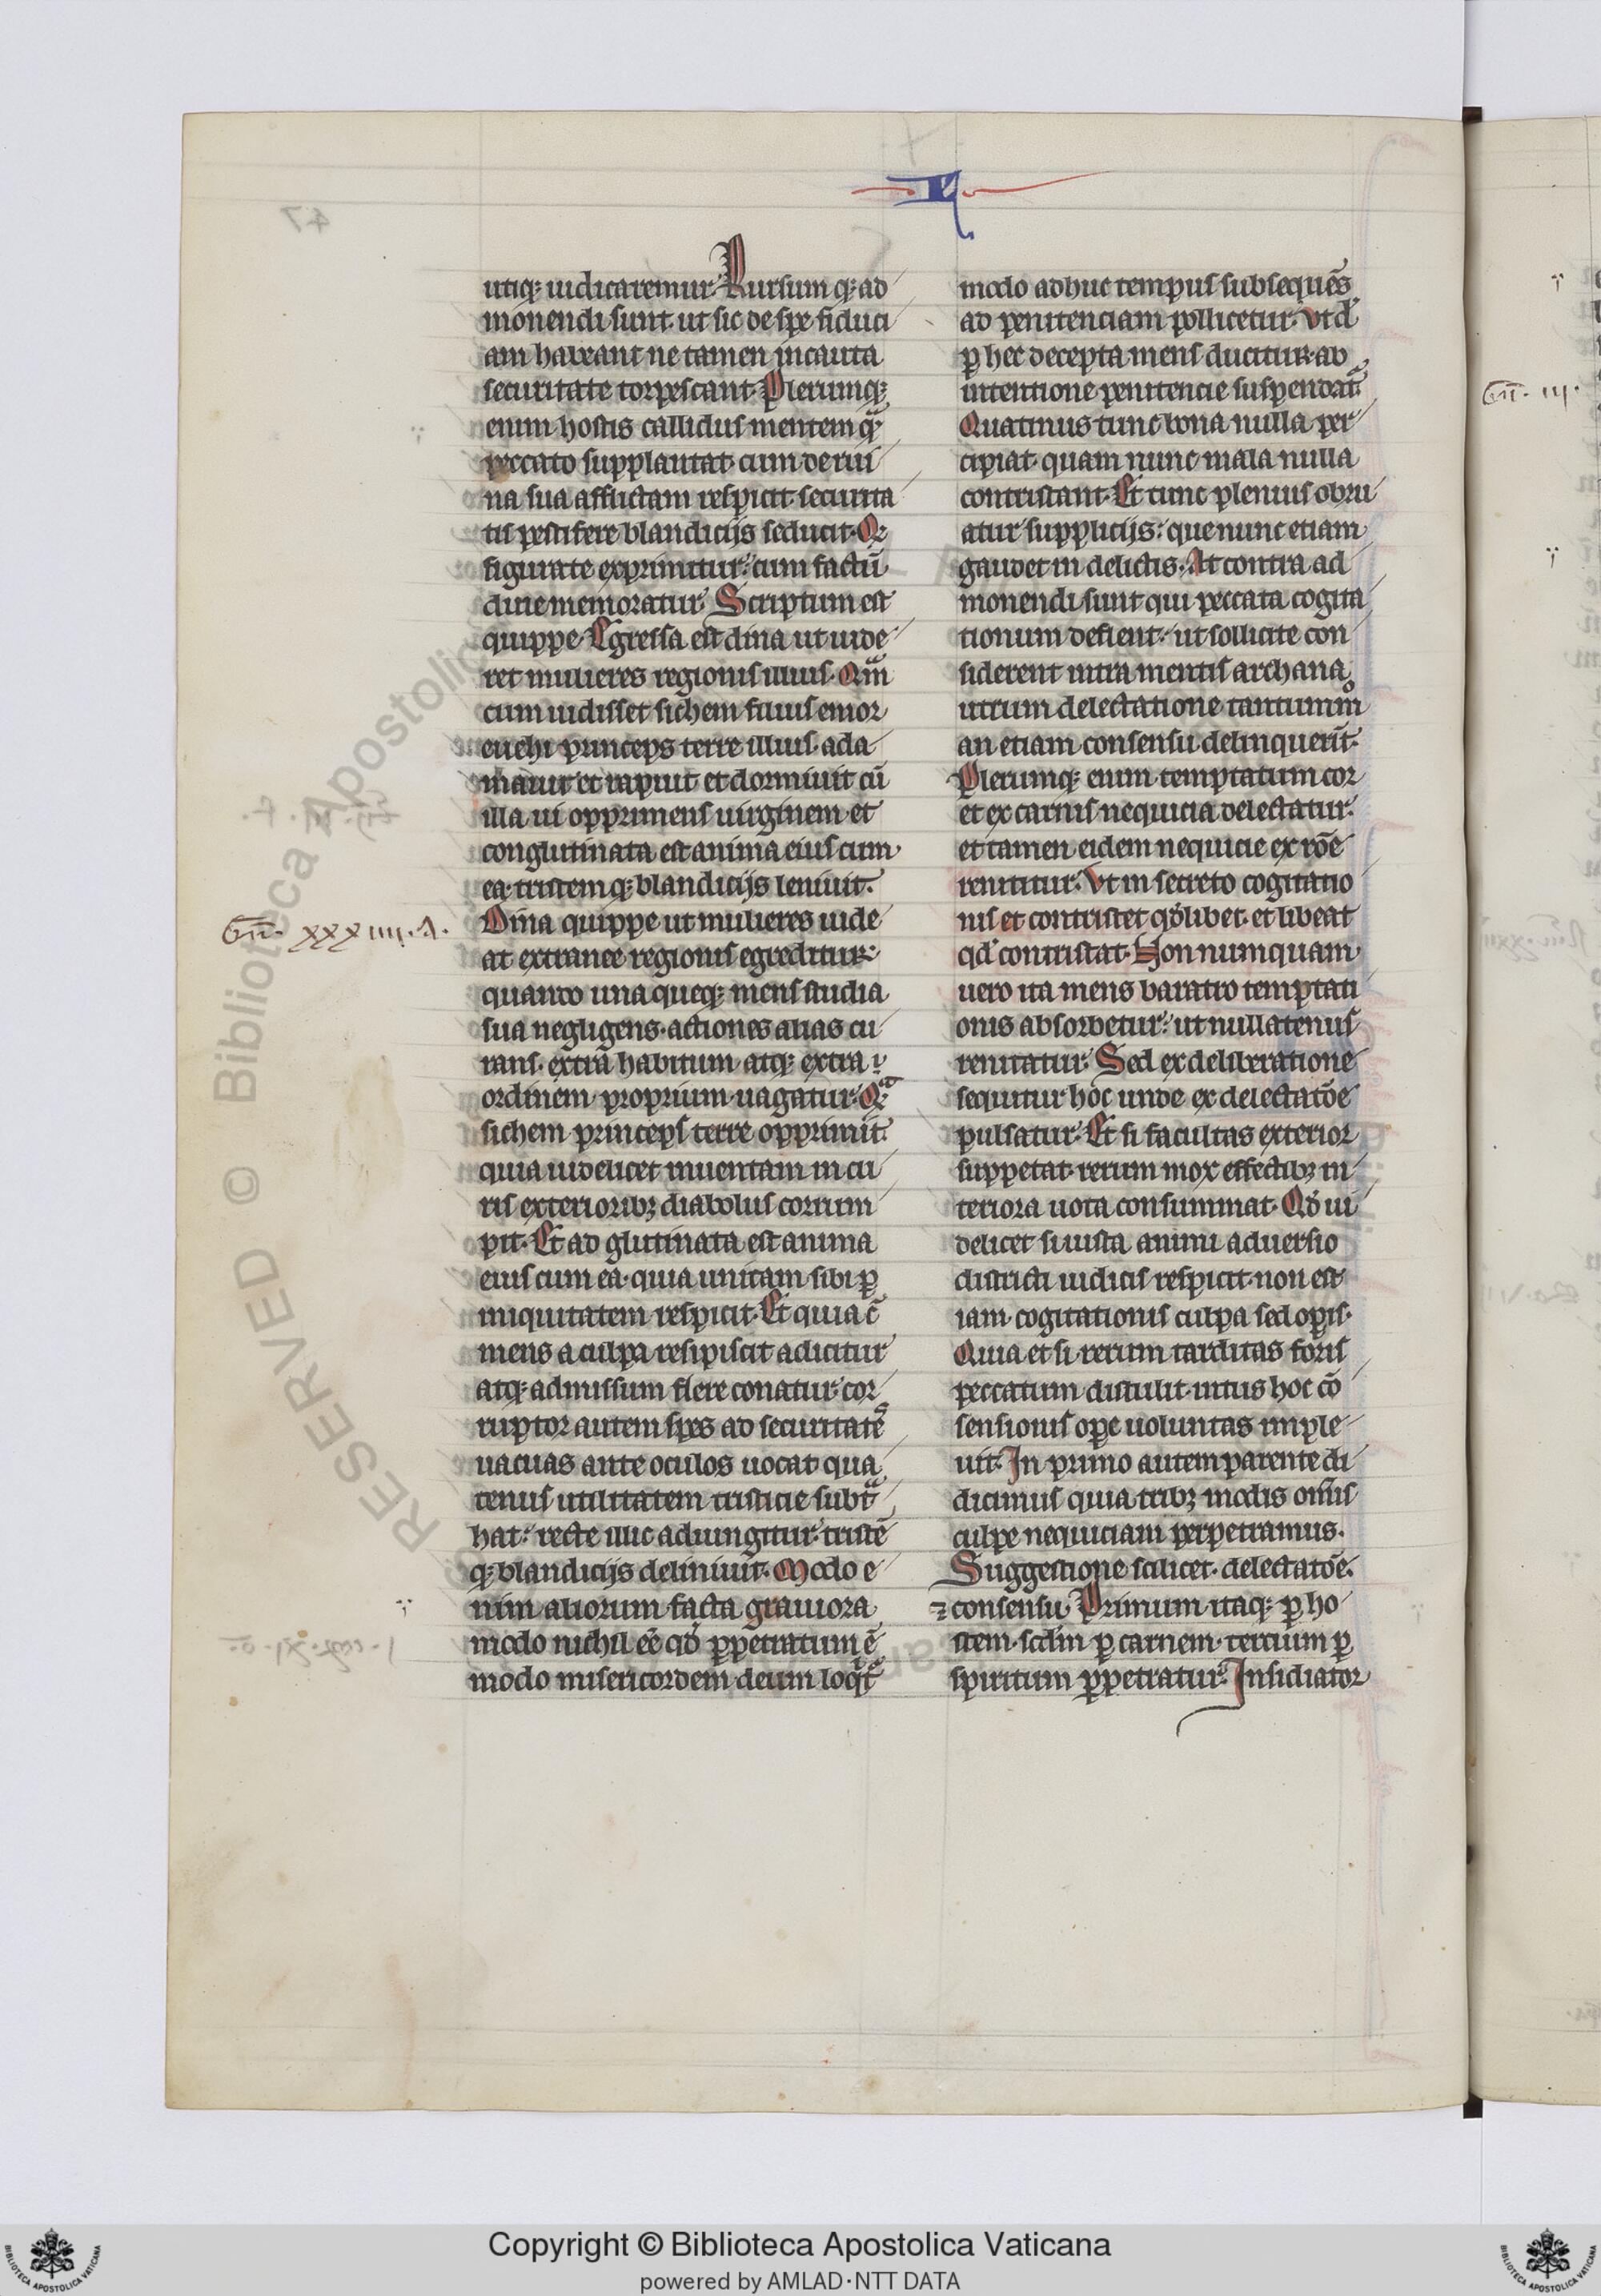 47
utiqꝫ iudicaremur. Rursum qꝫ ad
monendi sunt. ut sic de spe fiduci
am habeant ne tamen incauta
securitate torpescant. Plerumqꝫ
enim hostis callidus mentem qͣꝫ
peccato supplantat. cum de rui
na sua afflictam respicit securita
tis pestifere blandicijs seducit. Qꝫ
figurate exprimitur. cum factū
dine memoratur. Scriptum est
quippe. Egressa est dina ut uide
ret mulieres regionis illius. Qͣm
cum uidisset sichem filius emor
euehi princeps terre illius. ada
mauit et rapuit et dormiuit cū
illa ui opprimens uirginem. et
conglutinata est anima eius cum
ea. tristem qꝫ blandicijs leniuit.
Dina quippe ut mulieres uide
Gn̄. xxxiiii. A.
at extranee regionis egreditur.
quando una queqꝫ mens studia
sua negligens. actiones alias cu
rans. extra habitum atqꝫ extra
ordinem proprium uagatur. Qͣꝫ
sichem princeps terre opprimit.
quia uidelicet inuentam in cu
ris exterioribꝫ diabolus corrum
pit. Et ad glutinata est anima
eius cum ea. quia unitam sibi ꝑ
iniquitatem respicit. Et quia c̄
mens a culpa resipiscit adicitur
atqꝫ admissum flere conatur. cor
ruptor autem spes ad securitatē
uacuas ante oculos uocat qua
tenus utilitatem tristicie subtͣ
hat. recte illic adiungitur. tristē
qꝫ blandicijs deliniuit. Modo e
nim aliorum facta grauiora
modo nichil eē̄ qd̓ ꝑpetratum ē
modo misericordem deum loqͥtͬ
modo adhuc tempus subsequēs
ad penitenciam pollicetur. Vt dͫ
ꝑ hec decepta mens ducitur. ab
intentione penitencie suspendatͬ.
Quatinus tunc bona nulla per
cipiat. quam nunc mala nulla
contristant. Et tunc plenius obru
atur supplicijs. que nunc etiam
gaudet in delictis. At contra ad
monendi sunt qui peccata cogita
tionum deflent. ut sollicite con
siderent intra mentis archana
utrum delectatione tantummͦ
an etiam consensu delinquerit̄.
Plerumqꝫ enim temptatum cor
et ex carnis nequicia delectatur.
et tamen eidem nequicie ex rōe
renititur. Vt in secreto cogitatio
nis et contristet qd̓ libet. et libeat
qd̓ contristat. Non numquam
uero ita mens baratro temptati
onis absorbetur. ut nullatenus
renitatur. Sed ex deliberatione
sequitur hoc unde ex delectatōe
pulsatur. Et si facultas exterior
suppetat. rerum mox effectibꝫ in
teriora uota consummat. Qd̓ ui
delicet si iusta animi aduersio
districti iudicis respicit. non est
iam cogitationis culpa sed opis.
Quia et si rerum tarditas foris
peccatum distulit. intus hoc cō
sensionis ope uoluntas imple
uit. In primo autem parente di
dicimus quia tribꝫ modis om̄is
culpe nequiciam perpetramus.
Suggestione scilicet. delectatōe.
⁊ consensu. Primum itaqꝫ ꝑ ho
stem. scd̄m ꝑ carnem. tercium ꝑ
spiritum ꝑpetratur. Insidiator
Gn̄. iij.
RESERVED © Biblioteca Apostolica
Copyright © Biblioteca Apostolica Vaticana
powered by AMLAD·NTT DATA
BIBLIOTECA APOSTOLICA VATICANA
BIBLIOTECA APOSTOLICA VATICANA